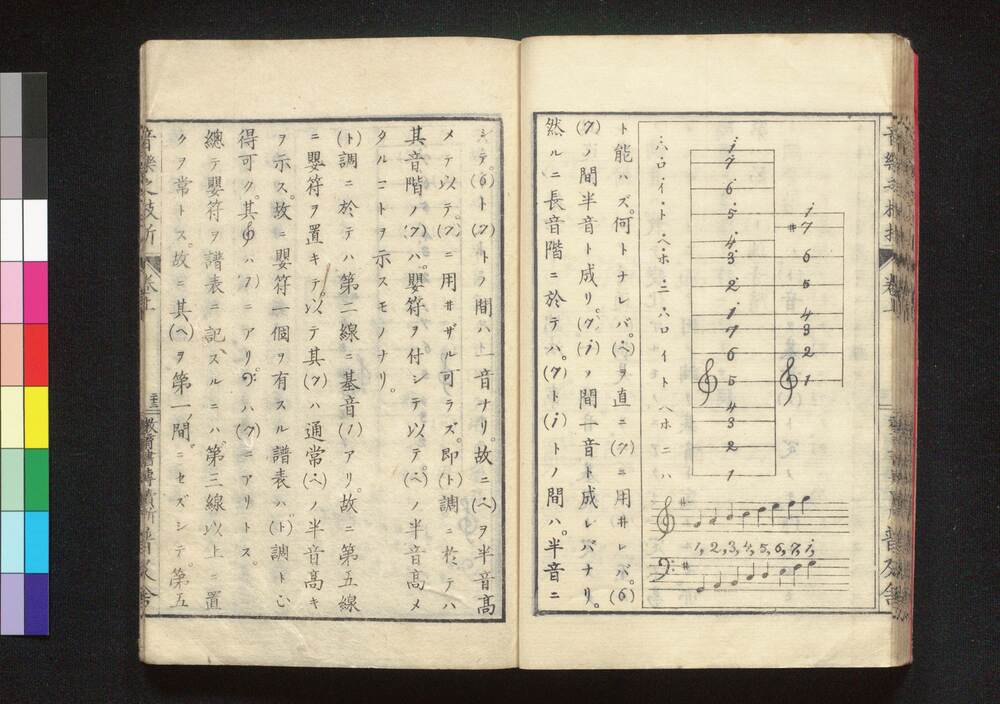 ト能ハズ。何トナレバ。(ヘ)ヲ直ニ(7)ニ用ヰレバ。(6)
(7)ノ間半音ト成リ。(7)(i)ノ間一音ト成レバナリ。
然ルニ長音階ニ於テハ。(7)ト(i)トノ間ハ。半音ニ
シテ。(6)ト(7)トノ間ハ一音ナリ。故ニ(ヘ)ヲ半音高
メテ以テ。(7)ニ用ヰザル可ラズ。即(ト)調ニ於テハ
其音階ノ(7)ハ。嬰符ヲ付シテ以テ。(ヘ)ノ半音高メ
タルコトヲ示スモノナリ。
(ト)調ニ於テハ第二線ニ基音(1)アリ。故ニ第五線
ニ嬰符ヲ置キテ。以テ其(7)ハ通常(ヘ)ノ半音高キ
ヲ示ス。故ニ嬰符一個ヲ有スル譜表ハ(ト)調ト心
得可ク。其𝄞ハ(1)ニアリ。𝄢ハ(7)ニアリトス。
總テ嬰符ヲ譜表ニ記スルニハ。第三線以上ニ置
クヲ常トス。故ニ其(ヘ)ヲ第一間。ニセズシテ。第五
i 7 6 5 4 3 2 1 7 6 5 4 3 2 1
i #7 6 5 4 3 2 1
ハ ロ イ ト ヘ ホ ニ ハ ロ イ ト ヘ ホ ニ ハ
1, 2, 3, 4, 5, 6, 7, i,
卷上